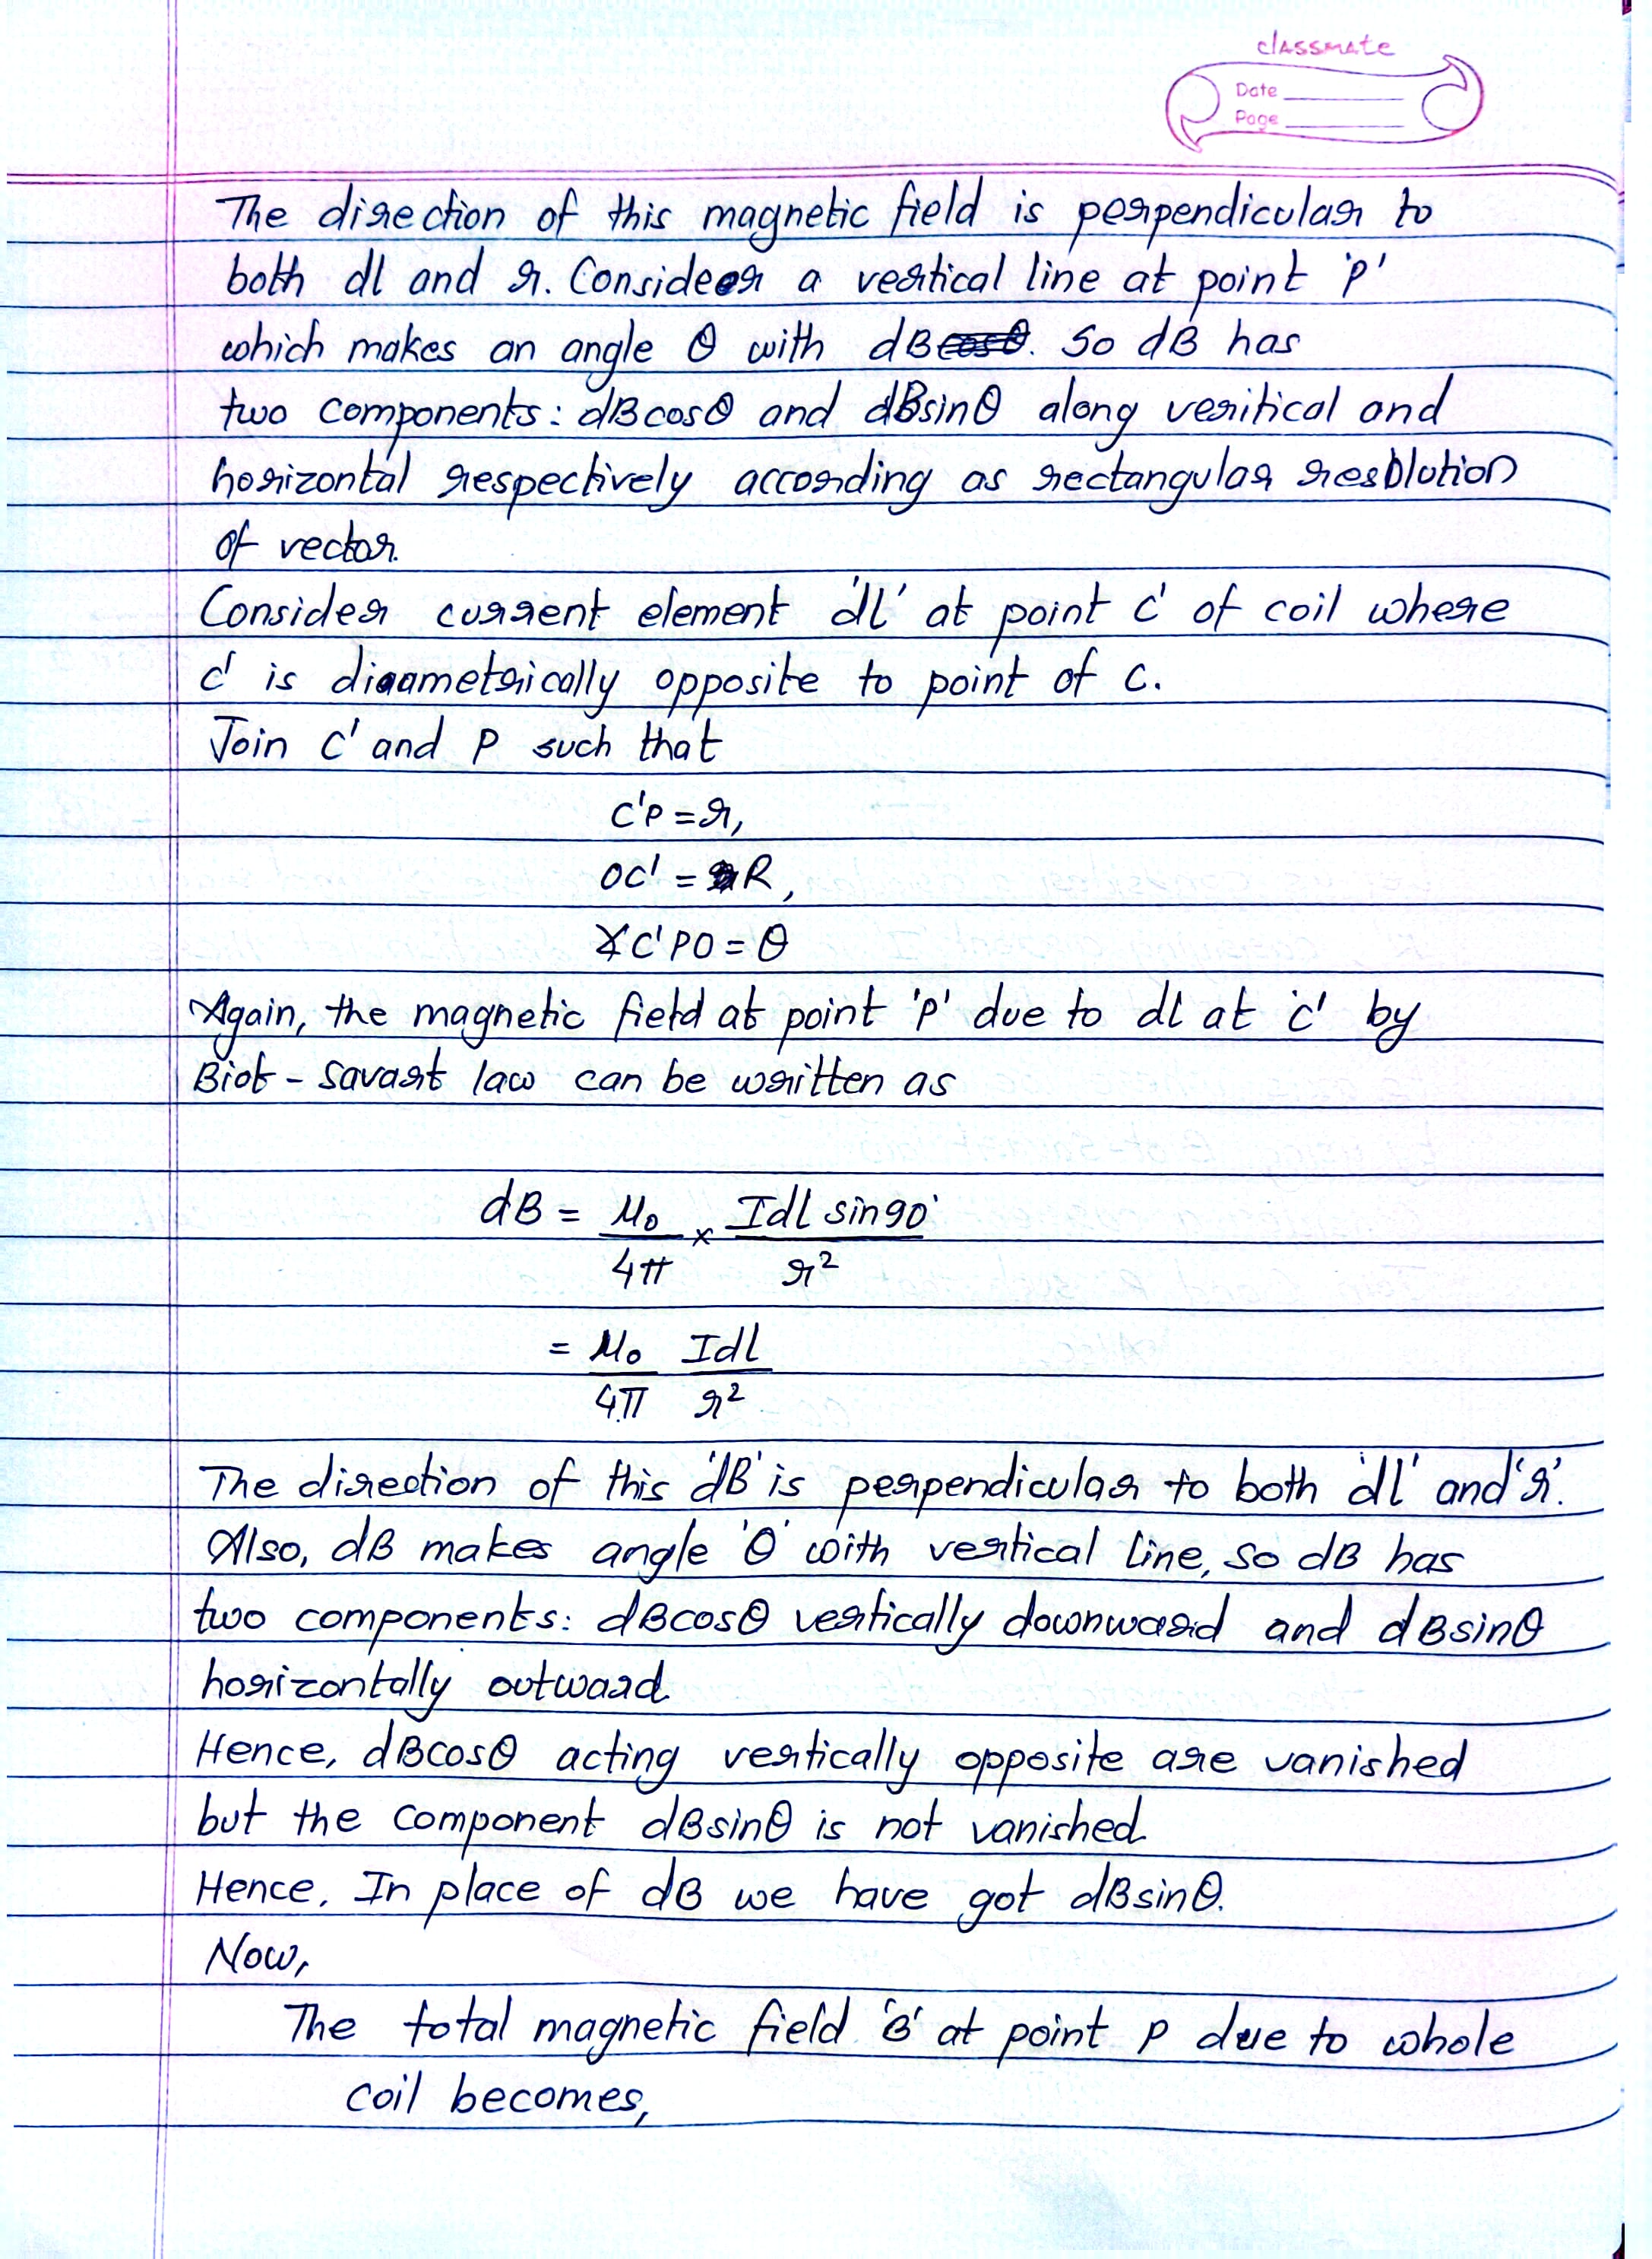 classmate
Date
Page
The direction of this magnetic field is perpendicular to
both dl and r. Consideer a vertical line at point 'P'
which makes an angle θ with dB cosθ. So dB has
two components: dBcosθ and dBsinθ along veritical and
horizontal respectively according as rectangular resolution
of vector.
Consider current element 'dl' at point C' of coil where
C' is diaametrically opposite to point of C.
Join C' and P such that
C'P = r,
OC' = R,
∡C'PO = θ
Again, the magnetic field at point 'P' due to dl at C' by
Biot-Savart law can be written as
dB = μ₀/4π × Idl sin90°/r²
= μ₀/4π Idl/r²
The direction of this 'dB' is perpendicular to both 'dl' and 'r'.
Also, dB makes angle 'θ' with vertical line, so dB has
two components: dBcosθ vertically downward and dBsinθ
horizontally outward.
Hence, dBcosθ acting vertically opposite are vanished
but the component dBsinθ is not vanished.
Hence, In place of dB we have got dBsinθ.
Now,
The total magnetic field 'B' at point P due to whole
coil becomes,